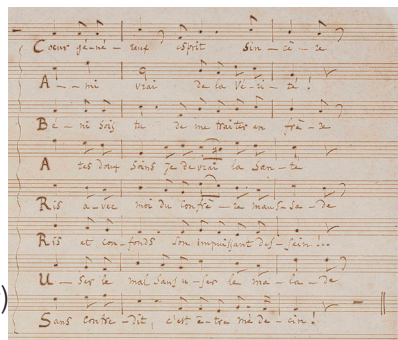 Coeur gé-né-reux esprit Sin-cè-re
A--mi vrai de la Vé-ri-té!
Bé-ni sois tu de me traiter en frè-re
A tes doux Soins je devrai la San-té
Ris a-vec moi du Confrè-re maussa-de
Ris et con-fonds Son impuissant des-sein!...
U-ser le mal Sans u-ser le ma-la-de
Sans Contre-dit, c'est ê-tre mé-de-cin!